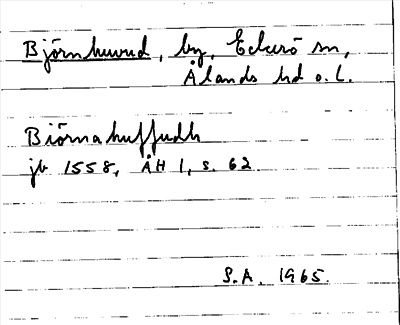 Björnhuvud, by, Eckerö sn,
Ålands hd o. L.
Biörnahuffudh
jb 1558, ÅH 1, s. 62
S.A. 1965.